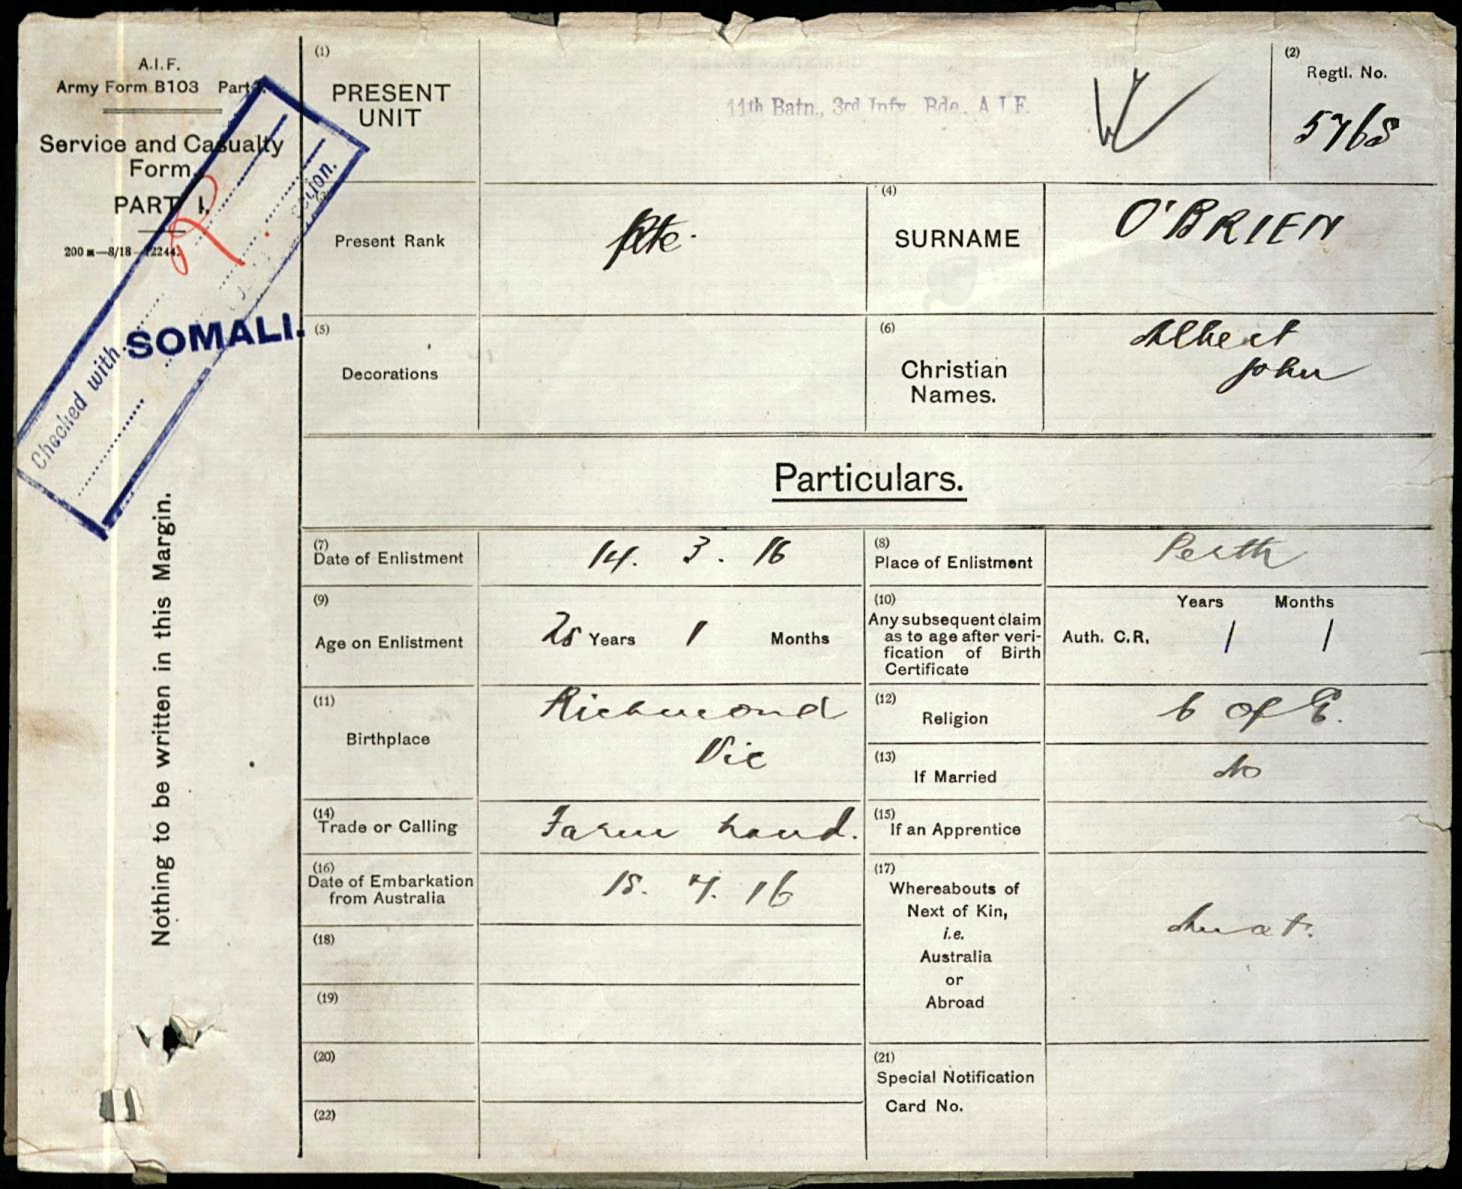 A.I.F.
Army Form B103 Part I.
Service and Casualty
Form.
PART I.
200 m—8/18—12244.
Checked with
SOMALI.
Nothing to be written in this Margin.
(1)
PRESENT
UNIT
11th Batn., 3rd Infy. Bde., A.I.F.
(2)
Regtl. No.
5765
Present Rank
Pte.
(4)
SURNAME
O'BRIEN
(5)
Decorations
(6)
Christian
Names.
Albert
John
Particulars.
(7)
Date of Enlistment
14. 3. 16
(8)
Place of Enlistment
Perth
(9)
Age on Enlistment
25 Years 1 Months
(10)
Any subsequent claim
as to age after veri-
fication of Birth
Certificate
Years Months
Auth. C.R.
(11)
Birthplace
Richmond
Vic
(12)
Religion
C of E.
(13)
If Married
No
(14)
Trade or Calling
Farm hand.
(15)
If an Apprentice
(16)
Date of Embarkation
from Australia
15. 4. 16
(17)
Whereabouts of
Next of Kin,
i.e.
Australia
or
Abroad
Aust.
(18)
(19)
(20)
(21)
Special Notification
Card No.
(22)